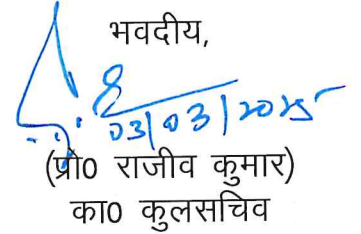 भवदीय,
03/03/2025
(प्रो0 राजीव कुमार)
का0 कुलसचिव